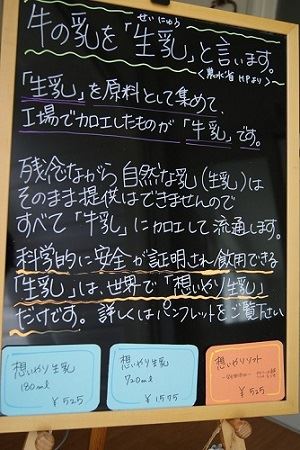 せいにゅう
牛の乳を「生乳」と言います。
<農水省HPより>
「生乳」を原料として集めて、
工場で加工したものが「牛乳」です。
残念ながら自然な乳(生乳)は
そのまま提供はできませんので
すべて「牛乳」に加工して流通します。
科学的に安全が証明され飲用できる
「生乳」は、世界で「想いやり生乳」
だけです。詳しくはパンフレットをご覧ださい
想いやり生乳
180ml
¥525
想いやり生乳
720ml
¥1575
想いやりソフト
¥525